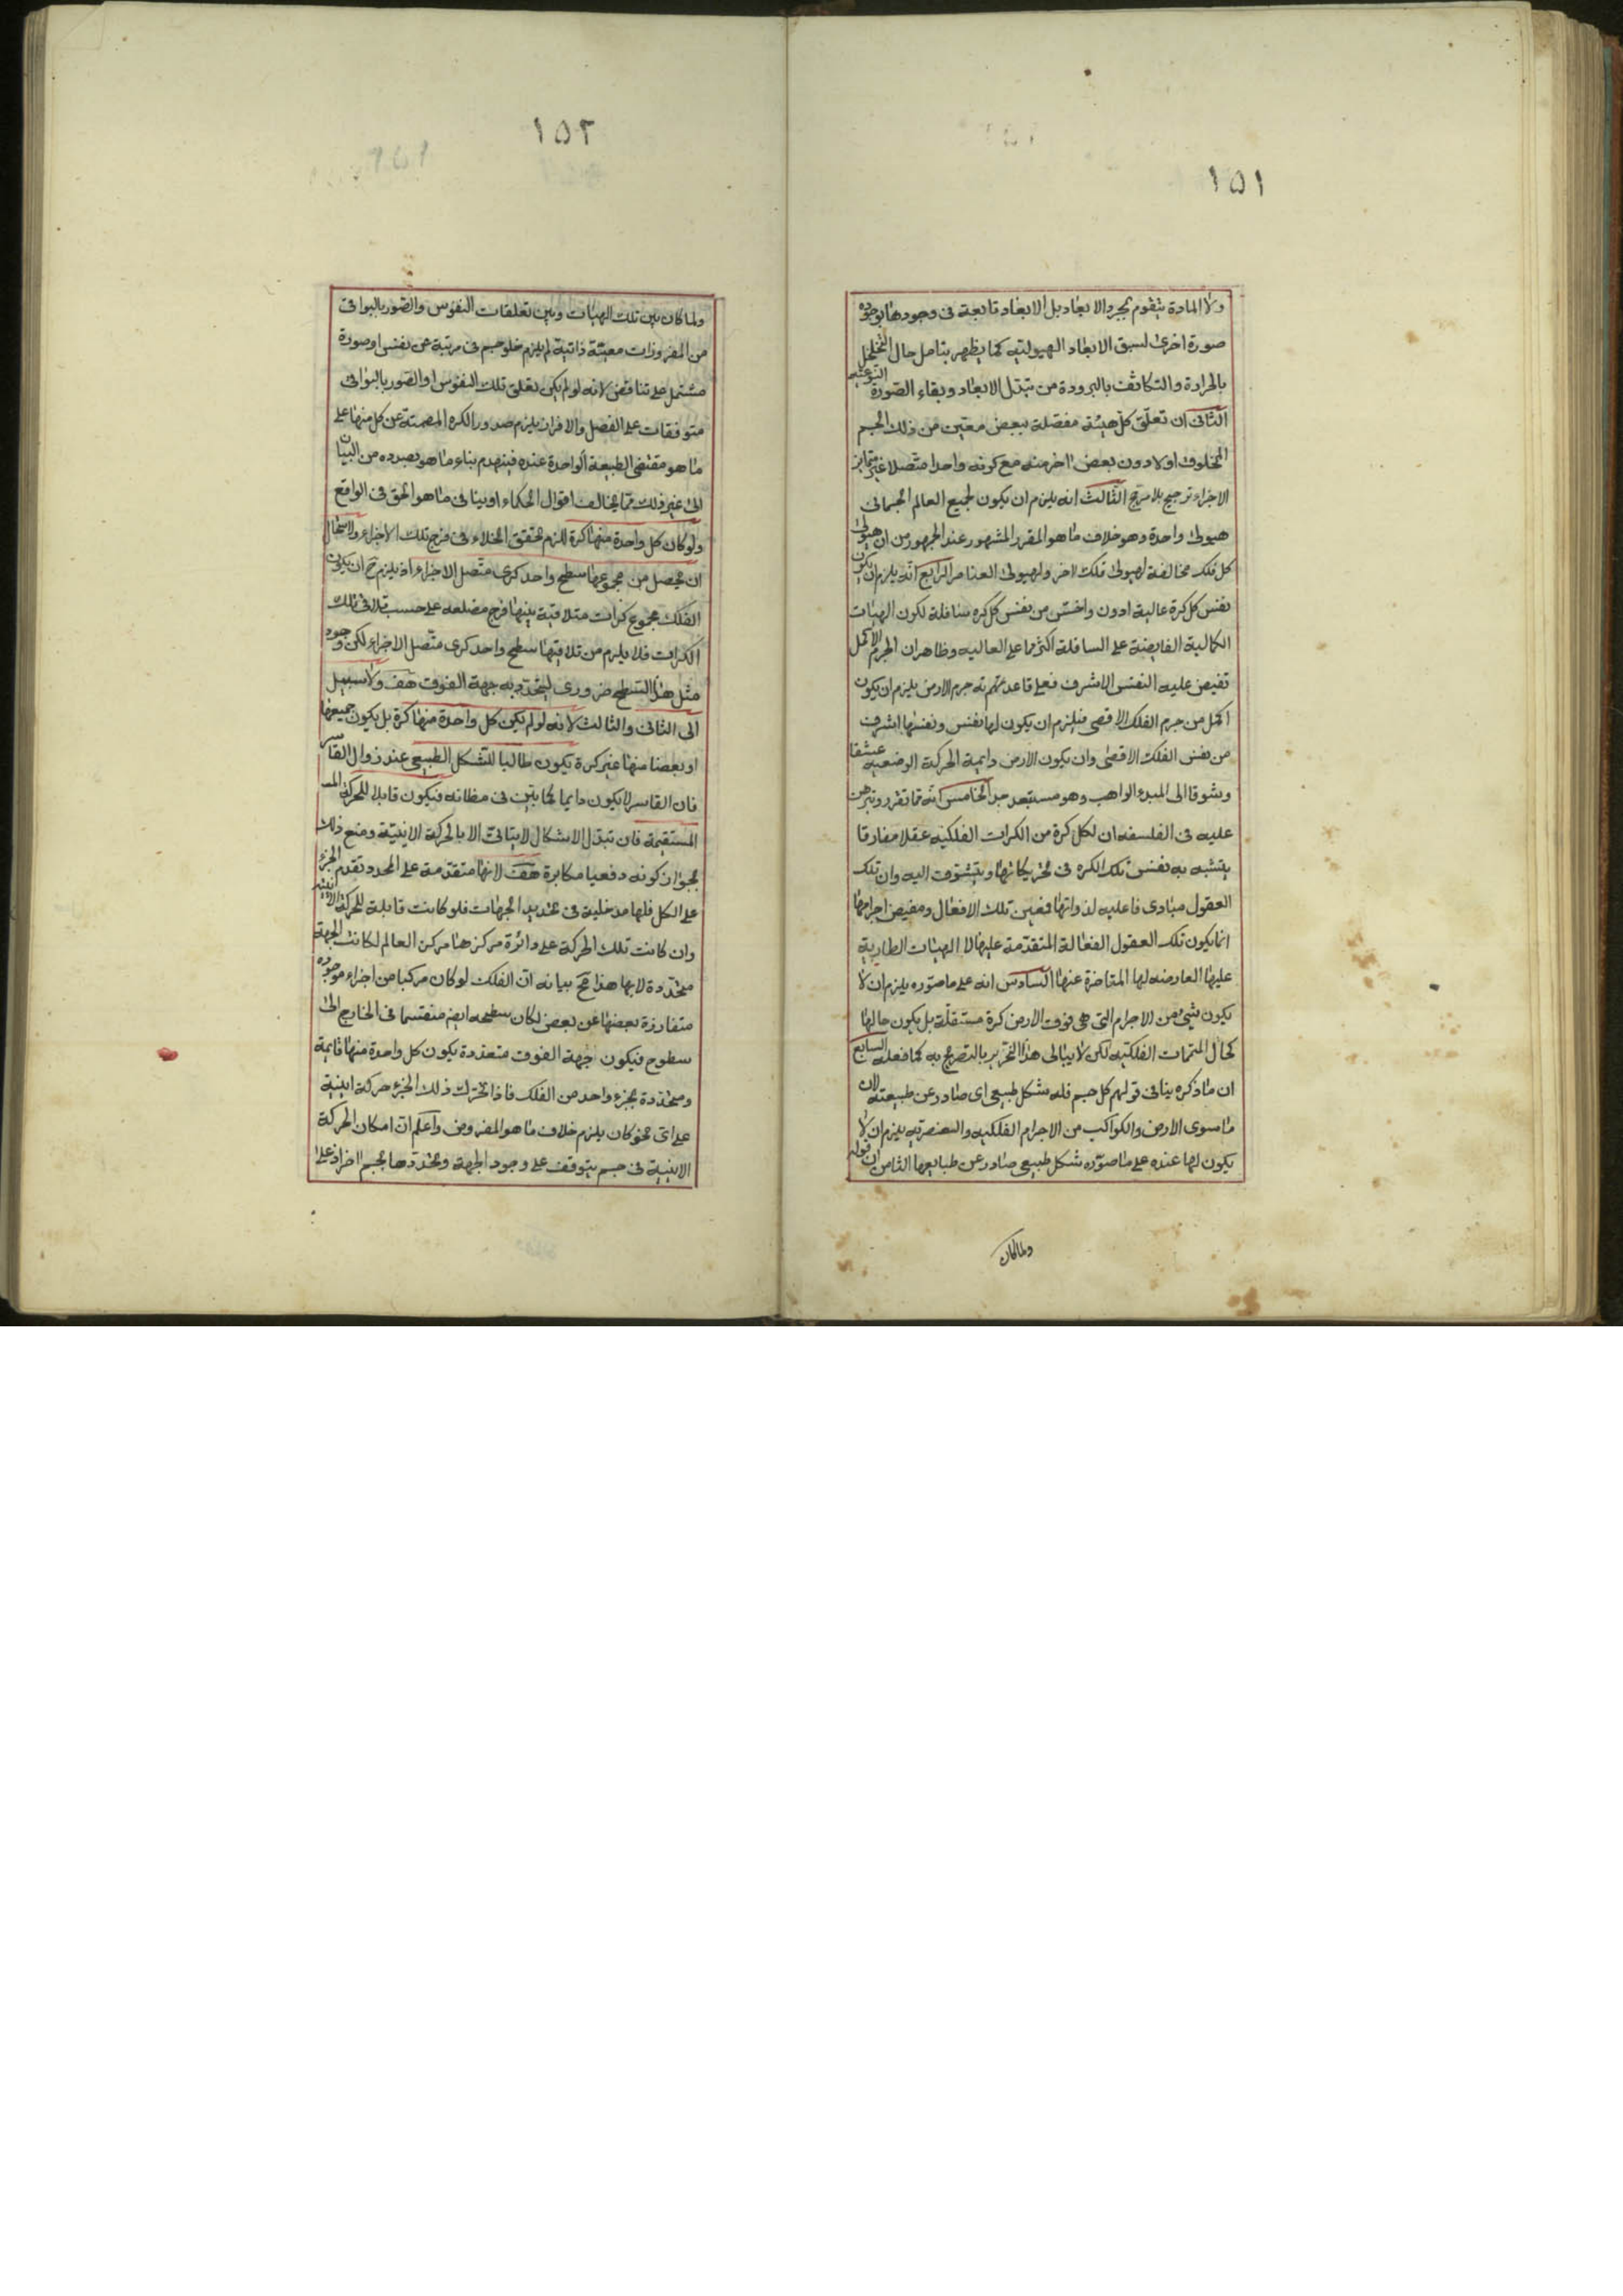 ١٥١
ولا المادة يتقوم بمجرد الابعاد بل الابعاد تابعة فى وجودها لوجوده
صورة اخرى لسبق الابعاد الهيولتيه كما يظهر بتامل حال التخلخل
بالحرارة والتكاثف بالبرودة من تبدل الابعاد وبقاء الصورة النوعيه
الثانى ان تعلق كل هيئة مفصلة ببعض معين من ذلك الجسم
المخلوق اولا دون بعض اخر منه مع كونه واحدا متصلا غير متمايز
الاجزاء ترجيح بلا مرجح الثالث انه يلزم ان يكون لجميع العالم الجسمانى
هيولى واحدة وهو خلاف ما هو المقرر المشهور عند الجمهور من ان هيولى
كل فلك مخالفة لهيولى فلك اخر ولهيولى العناصر الرابع انه يلزم ان يكون
نفس كل كرة عالية ادون واخس من نفس كل كره سافلة لكون الهيئات
الكمالية الفايضة على السافلة اكثر مما على العاليه وظاهر ان الجرم الاكمل
تفيض عليه النفس الاشرف فعلى قاعدتهم جرم الارض يلزم ان يكون
اكمل من جرم الفلك الاقصى فيلزم ان يكون لها نفس ونفسها اشرف
من نفس الفلك الاقصى وان يكون الارض دايمة الحركة الوضعيه عشقا
وشوقا الى المبدء الواهب وهو مستبعد جدا الخامس انه مما تقرر وتبرهن
عليه فى الفلسفه ان لكل كرة من الكرات الفلكيه عقلا مفارقا
يتشبه به نفس تلك الكره فى تحريكاتها ويتشوق اليه وان تلك
العقول مبادى فاعليه لذواتها فعين تلك الافعال ومفيض اجرامها
انما يكون تلك العقول الفعالة المتقدمة عليها لا الهيئات الطارية
عليها العارضه لها المتاخرة عنها السادس انه على ما صوره يلزم ان لا
يكون شئ من الاجرام التى هى فوق الارض كرة مستقلة بل يكون حالها
كحال المتممات الفلكيه لكن لا يبالى هذا النحرير بالتصريح به كما فعله السابع
ان ما ذكره ينافى قولهم كل جسم فله شكل طبيعى اى صادر عن طبيعته لان
ما سوى الارض والكواكب من الاجرام الفلكيه والعنصريه يلزم ان لا
يكون لها عنده على ما صوره شكل طبيعى صادر عن طبايعها الثامن ان قوله
ولما كان
١٥٢
ولما كان بين تلك الهيئات وبين تعلقات النفوس والصور بالبواقى
من المفروزات معيّة ذاتية لم يلزم خلو جسم فى مرتبة عن نفس او صورة
مشتمل على تناقض لانه لو لم يكن تعلق تلك النفوس او الصور بالبواقى
متوقفات على الفصل والافراز يلزم صدور الكره المصمتة عن كل منها على
ما هو مقتضى الطبيعة الواحدة عنده فينهدم بناء ما هو بصدده من البيان
الى غير ذلك مما يخالف اقوال الحكماء او ينافى ما هو الحق فى الواقع
ولو كان كل واحدة منها كرة للزم تحقق الخلاء فى فرج تلك الاجزاء ولاستحال
ان يحصل من مجموعها سطح واحد كرى متصل الاجزاء اذ يلزم ح ان يكون
الفلك مجموع كرات متلاقية بينها فرج مضلعه على حسب تلاقى تلك
الكرات فلا يلزم من تلاقيها سطح واحد كرى متصل الاجزاء لكن وجود
مثل هذا السطح ضرورى ليتحدد به جهة الفوق هف ولا سبيل
الى الثانى والثالث لانه لو لم يكن كل واحدة منها كرة بل يكون جميعها
او بعضا منها غير كرة يكون طالبا للشكل الطبيعى عند زوال القاسر
فان القاسر لا يكون دايما كما بين فى مظانه فيكون قابلا للحركة
المستقيمة فان تبدل الاشكال لا يتاتى الا بالحركة الاينيّة ومنع ذلك
بجواز كونه دفعيا مكابرة هف لانها متقدمة على المحدد تقدم الجزء
على الكل فلها مدخلية فى تحديد الجهات فلو كانت قابلة للحركة الاينيه
وان كانت تلك الحركة على دائرة مركزها مركز العالم لكانت الجهة
متحددة لا بها هذا مح بيانه ان الفلك لو كان مركبا من اجزاء موجوده
متفارزة بعضها عن بعض لكان سطحه ايض منقسما فى الخارج الى
سطوح فيكون جهة الفوق متعددة يكون كل واحدة منها قايمة
ومتحددة بجزء واحد من الفلك فاذا تحرك ذلك الجزء حركة اينية
على اى نحو كان يلزم خلاف ما هو المفروض واعلم ان امكان الحركة
الاينية فى جسم يتوقف على وجود الجهة وتحددها بجسم اخر اذ على